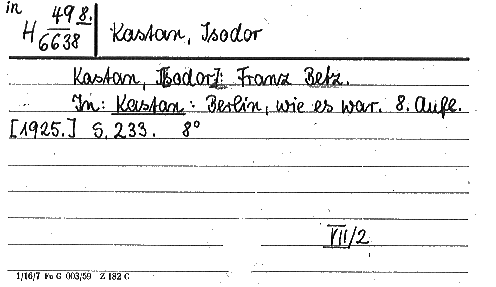 in
H 49 8. Kastan, Isodor
6638
Kastan, [Isodor]: Franz Betz.
In: Kastan: Berlin, wie es war. 8. Aufl.
[1925.] S. 233. 8°
VII/2
1/16/7 Fo G 003/59 Z 182 C